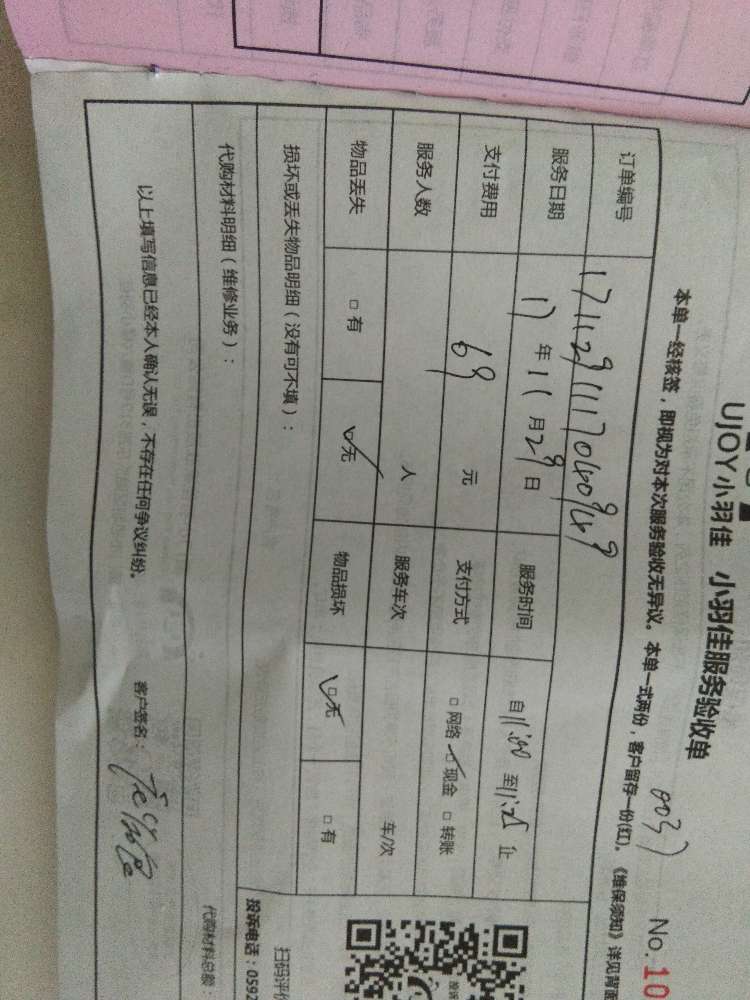 UJOY小羽佳 小羽佳服务验收单
本单一经核签，即视为对本次服务验收无异议。本单一式两份，客户留存一份(红)。《维保须知》详见背面
No. 10
订单编号
服务日期 17 年 11 月 29 日 服务时间 自 至 11:25 止
支付费用 69 元 支付方式 □ 网络 □ 现金 □ 转账
服务人数 人 服务车次 车/次
物品丢失 □ 有 □ 无 物品损坏 □ 无 □ 有
损坏或丢失物品明细（没有可不填）：
代购材料明细（维修业务）：
代购材料总额：
以上填写信息已经本人确认无误，不存在任何争议纠纷。 客户签名：
扫码评价
投诉电话：0592